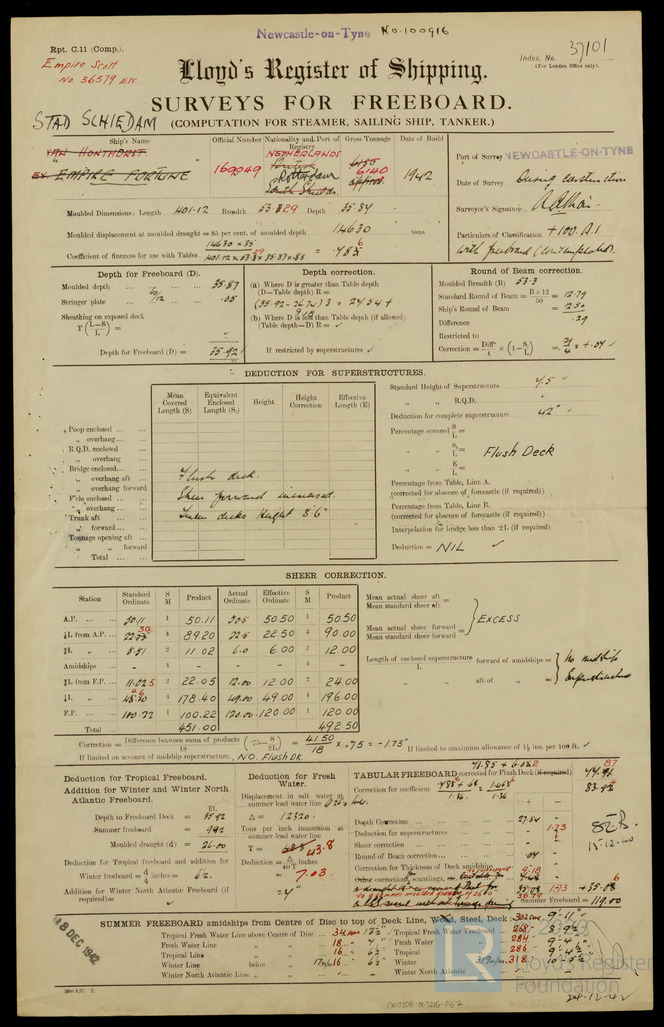 Newcastle-on-Tyne No. 100916
Rpt. C.11 (Comp.).
Index. No. 37101
(For London Office only).
Empire Scott
No. 36579 ETC.
Lloyd's Register of Shipping.
SURVEYS FOR FREEBOARD.
(COMPUTATION FOR STEAMER, SAILING SHIP, TANKER.)
STAD SCHIEDAM
Ship's Name Official Number Nationality and Port of Registry Gross Tonnage Date of Build
VAN HONTHORST
EX EMPIRE FORTUNE
169049
NETHERLANDS
Rotterdam
6140
1942
Port of Survey NEWCASTLE-ON-TYNE
Date of Survey During construction
Surveyor's Signature
Particulars of Classification +100.A.1
with freeboard (contemplated).
Moulded Dimensions: Length 401.12 Breadth 53.29 Depth 35.87
Moulded displacement at moulded draught = 85 per cent. of moulded depth 14630 tons
Coefficient of fineness for use with Tables
Depth for Freeboard (D).
Moulded depth 35.87
Stringer plate .05
Sheathing on exposed deck
T (L-S/L) =
Depth for Freeboard (D) = 35.92
Depth correction.
(a) Where D is greater than Table depth
(D-Table depth) R =
(35.92-26.74) 3 = 27.54 +
(b) Where D is less than Table depth (if allowed)
(Table depth-D) R =
If restricted by superstructures
Round of Beam correction.
Moulded Breadth (B) 53.3
Standard Round of Beam = B×12/50 = 12.79
Ship's Round of Beam = 12.50
Difference .29
Restricted to
Correction = Diffce/4 × (1-S₁/L) = .29/4 = +.07
DEDUCTION FOR SUPERSTRUCTURES.
Mean Covered Length (S) Equivalent Enclosed Length (S₁) Height Height Correction Effective Length (E)
Poop enclosed
" overhang
R.Q.D. enclosed
" overhang
Bridge enclosed
" overhang aft
" overhang forward
F'cle enclosed
" overhang
Trunk aft
" forward
Tonnage opening aft
" " forward
Total
Flush deck.
Sheer forward increased.
Tween decks height 8'6"
Standard Height of Superstructure 7.5
" " R.Q.D. -
Deduction for complete superstructure 42"
Percentage covered S/L =
" " S₁/L = Flush Deck
" " E/L =
Percentage from Table, Line A.
(corrected for absence of forecastle (if required))
Percentage from Table, Line B.
(corrected for absence of forecastle (if required))
Interpolation for bridge less than ·2L (if required)
Deduction = NIL
SHEER CORRECTION.
Station Standard Ordinate S M Product Actual Ordinate Effective Ordinate S M Product
A.P. 50.11 1 50.11 50.5 50.50 1 50.50
⅙L from A.P. 22.30 4 89.20 22.5 22.50 4 90.00
⅓L " 5.51 2 11.02 6.0 6.00 2 12.00
Amidships - 4 - - - 4 -
⅓L from F.P. 11.025 2 22.05 12.00 12.00 2 24.00
⅙L " 4 178.40 49.00 49.00 4 196.00
F.P. 100.22 1 100.22 120.00 120.00 1 120.00
Total 451.00 492.50
Mean actual sheer aft
Mean standard sheer aft =
Mean actual sheer forward
Mean standard sheer forward =
EXCESS
Length of enclosed superstructure forward of amidships =
L
" " aft of " =
No midship
Superstructure
Correction = Difference between sums of products/18 (·75-S/2L) = 41.50/18 × .75 = -1.73"
If limited on account of midship superstructure, NO. Flush DK. If limited to maximum allowance of 1½ ins. per 100 ft.
Deduction for Tropical Freeboard.
Addition for Winter and Winter North
Atlantic Freeboard.
Ft.
Depth to Freeboard Deck = 35.92
Summer freeboard = 9.92
Moulded draught (d) = 26.00
Deduction for Tropical freeboard and addition for
Winter freeboard = d/4 inches = 6½
Addition for Winter North Atlantic Freeboard (if
required) =
Deduction for Fresh
Water.
Displacement in salt water at
summer load water line
Δ = 12320
Tons per inch immersion at
summer load water line
T = 43.8
Deduction = Δ/40T inches
= 7.03
= 7"
TABULAR FREEBOARD corrected for Flush Deck (if required)
Correction for coefficient
Depth Correction 27.54 -
Deduction for superstructures - -
Sheer correction 1.73
Round of Beam correction .07 -
Correction for Thickness of Deck amidships
Summer Freeboard = 119.00
SUMMER FREEBOARD amidships from Centre of Disc to top of Deck Line, Wood, Steel, Deck 302 9'-11"
Tropical Fresh Water Line above Centre of Disc 13½" Tropical Fresh Water Freeboard 268 8'-9½"
Fresh Water Line " " 18 7" Fresh Water " 284 9'-4"
Tropical Line " " 16 6½" Tropical " 286 9'-4½"
Winter Line below " 16 6½" Winter " 318 10'-5½"
Winter North Atlantic Line " " Winter North Atlantic "
18 DEC 1942
15-12-40
24-12-42
LR
Lloyd's Register
Foundation